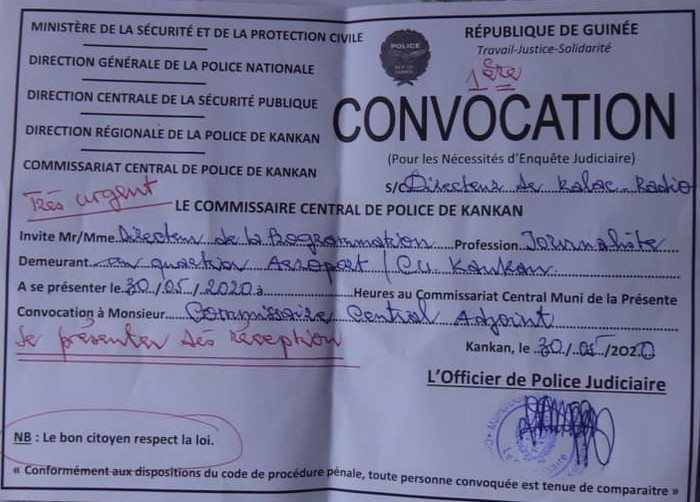 MINISTÈRE DE LA SÉCURITÉ ET DE LA PROTECTION CIVILE
DIRECTION GÉNÉRALE DE LA POLICE NATIONALE
DIRECTION CENTRALE DE LA SÉCURITÉ PUBLIQUE
DIRECTION RÉGIONALE DE LA POLICE DE KANKAN
COMMISSARIAT CENTRAL DE POLICE DE KANKAN
POLICE
RÉPUBLIQUE DE GUINÉE
Travail-Justice-Solidarité
1ère
CONVOCATION
(Pour les Nécessités d'Enquête Judiciaire)
s/c Directeur de Kalac-Radio
Très urgent
LE COMMISSAIRE CENTRAL DE POLICE DE KANKAN
Invite Mr/Mme Directeur de la Programmation Profession Journaliste
Demeurant au quartier Aeroport / C.U Kankan
A se présenter le 30/05/2020 à Heures au Commissariat Central Muni de la Présente
Convocation à Monsieur Commissaire Central Adjoint
Se présenter dès réception
Kankan, le 30/05/2020
L'Officier de Police Judiciaire
NB : Le bon citoyen respect la loi.
« Conformément aux dispositions du code de procédure pénale, toute personne convoquée est tenue de comparaitre »